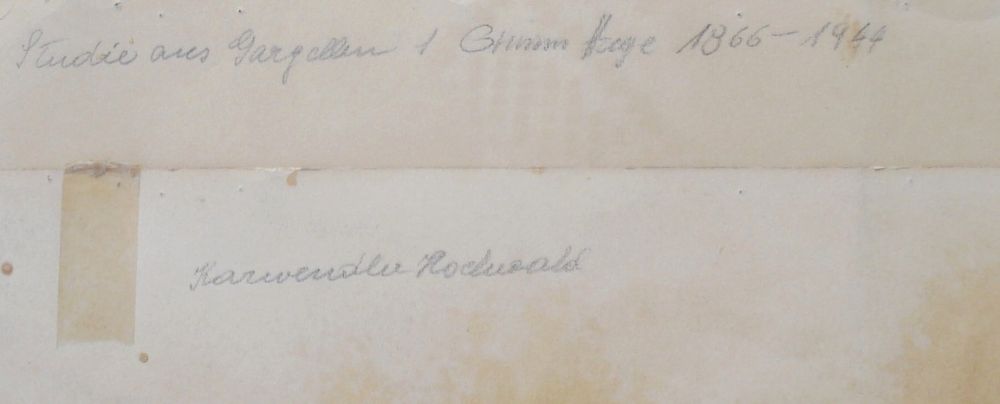 Studie aus Gargellen 1 1866-1944
Karwendler Hochwald